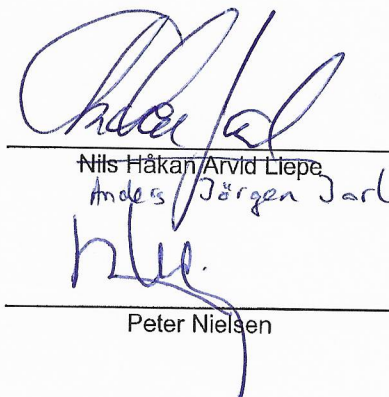 Nils Håkan Arvid Liepe
Anders Jörgen Jarl
Peter Nielsen